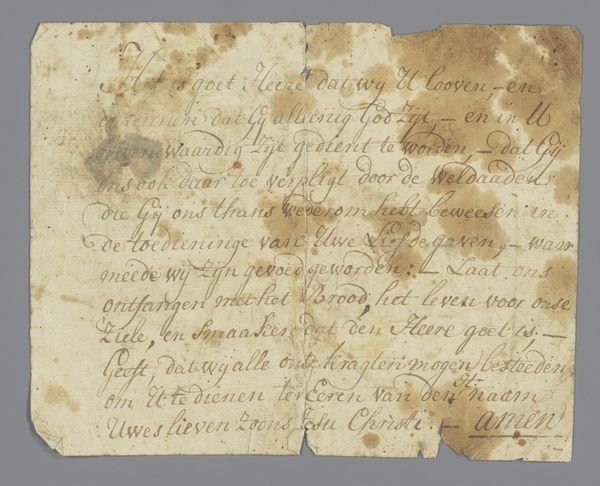 Het is goet Heere dat wij U looven, - en
erkennen dat Gij alleenig God Zijt - en in U
waardig Zijt gedient te worden, - dat Gij
ons ook daar toe verpligt door de Weldaaden
die Gij ons thans wederom hebt beweesen in
de toedieninge van Uwe Liefde gaven, - waar
meede wij Zijn gevoed geworden: - Laat ons
ontfangen met het Brood, het leven voor onse
Ziele, en smaaken dat den Heere goet is, -
Geeft, dat wij alle onse kragten mogen besteeden
om U te dienen ter Eeren van den H. naam
Uwes lieven Zoons Jesu Christi. - amen